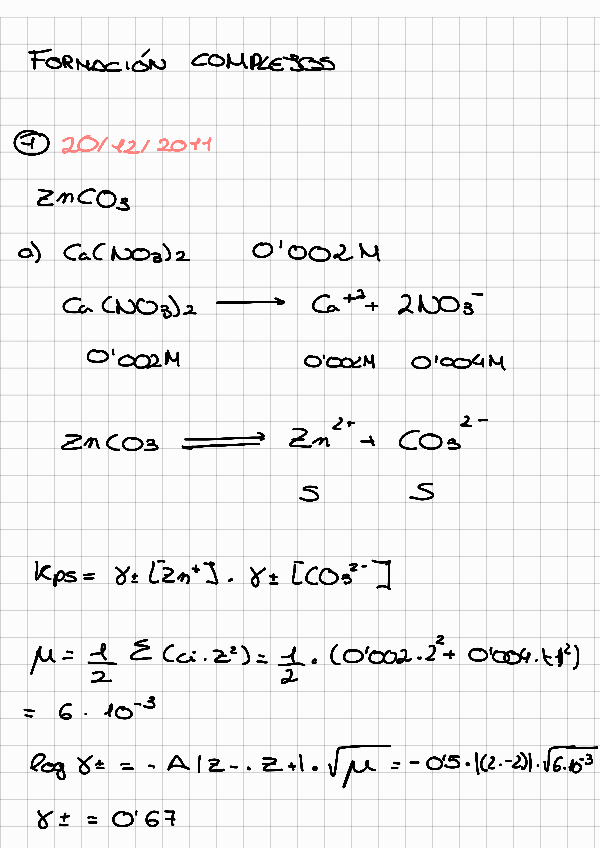 FORMACIÓN COMPLEJOS
1 20/12/2011
ZnCO₃
a) Ca(NO₃)₂ 0'002M
Ca(NO₃)₂ ⟶ Ca⁺² + 2NO₃⁻
0'002M 0'002M 0'004M
ZnCO₃ ⇌ Zn²⁺ + CO₃²⁻
S S
Kps = γ± [Zn⁺] · γ± [CO₃²⁻]
μ = 1/2 Σ(ci·z²) = 1/2 · (0'002·2² + 0'004·(-1)²)
= 6 · 10⁻³
log γ± = - A |z-·z+| · √μ = - 0'5 · |(2·-2)| · √6·10⁻³
γ± = 0'67